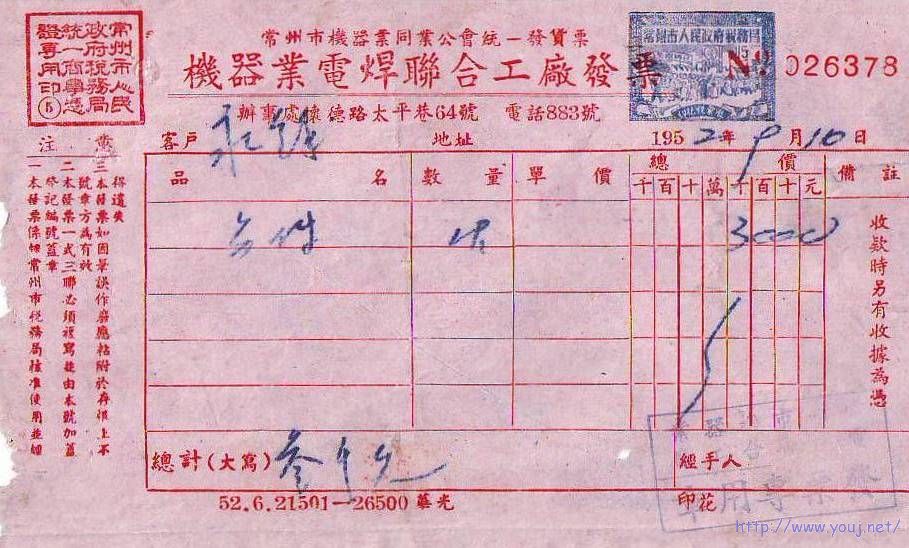 常州市人民
政府稅務局
統一商學憑
證專用印
⑤
常州市機器業同業公會統一發貨票
機器業電焊聯合工廠發票
常州市人民政府稅務局
№ 026378
辦事處懷德路太平巷64號 電話883號
客戶 地址 1952年9月10日
品名 數量 單價 總價 備註
千百十萬千百十元
3000
收款時另有收據為憑
總計(大寫) 叁千元
經手人
52.6.21501—26500 華光
印花
注意
一本發票係經常州市稅務局核准使用並經
登記編號蓋章
二本發票一式三聯必須複寫並由本號加蓋
號章方為有效
三本發票如因筆誤作廢應粘附於存根上不
得遺失
http://www.youj.net/